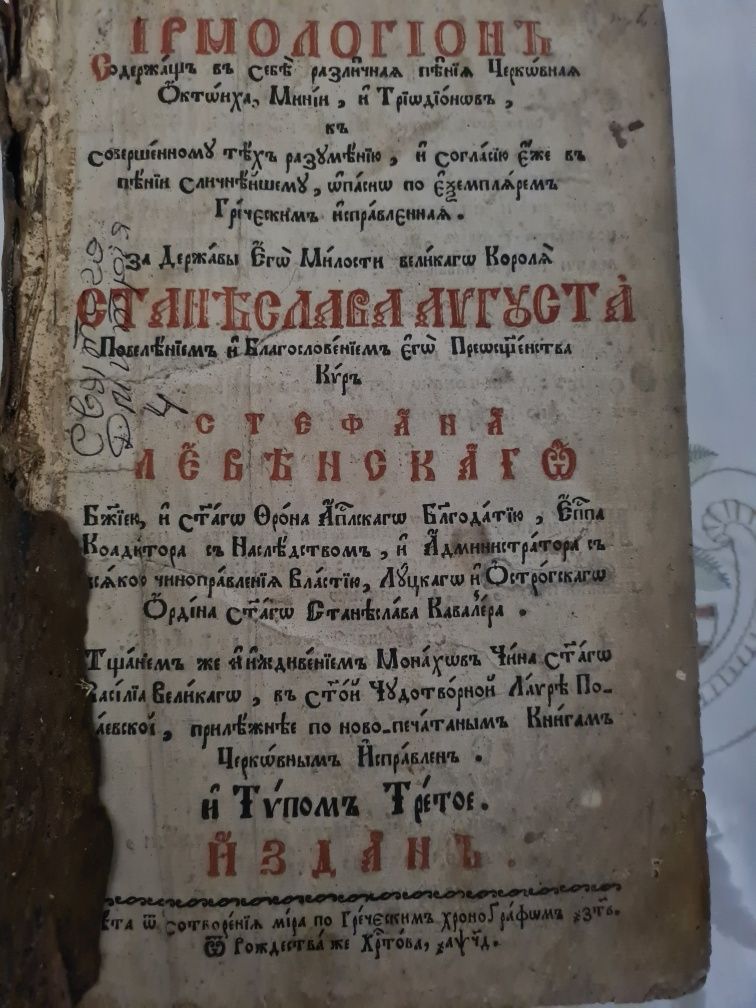 ІРМОЛОГІОНЪ
Содержа́щъ въ себѣ̀ разли́чная пѣ̑нія Черко́вная
Ѻ҆ктѡ́иха, Мині́и, и҆ Трїѡдїо́новъ,
къ
соверше́нному тѣ́хъ разумѣ́нїю, и҆ согла́сїю є҆́же въ
пѣ́нїи сличнѣ́йшему, ѡ҆па́снѡ по є҆ѯемпля́ремъ
Гре́ческимъ и҆спра́вленная.
за Держа́вы Є҆гѡ̀ Ми́лости вели́кагѡ Королѧ̀
СТАНѢСЛАВА АѴГꙊСТА
Повелѣ́нїемъ и҆ Благослове́нїемъ є҆гѡ̀ Преѡсщ҃е́нства
Кѵ́ръ
СТЕФА́НА
ЛЕ́ВѢНСКАГѠ
Бж҃їею, и҆ ст҃а́гѡ Ѳро́на А҆пⷭ҇лскагѡ Бл҃года́тїю, Є҆пⷭ҇па
Коадїю́тора съ Наслѣ́дствомъ, и҆ А҆дминистра́тора съ
вся́кою чиноправле́нїя Вла́стїю, Лꙋ́цкагѡ и҆ Ѻ҆стро́гскагѡ
Ѻ҆́рдїна ст҃а́гѡ Станѣсла́ва Кавале́ра.
Тща́нїемъ же и҆ и҆ждиве́нїемъ Мона́хѡвъ Чи́на ст҃а́гѡ
Васи́лїа Вели́кагѡ, въ ст҃о́й Чудотво́рной Ла́ѵрѣ По-
чаевской, прилѣ́жнѣе по ново-печа́танымъ Кни́гамъ
Черко́внымъ И҆спра́вленъ.
и҆ Тѵ́помъ Тре́тое.
И҆́ЗДА́НЪ.
ѿ сотворе́нїя мі́ра по Гре́ческимъ хроногра́фомъ
Ѿ Рождества́ же Хрⷭ҇то́ва, ҂аѱч҃д.